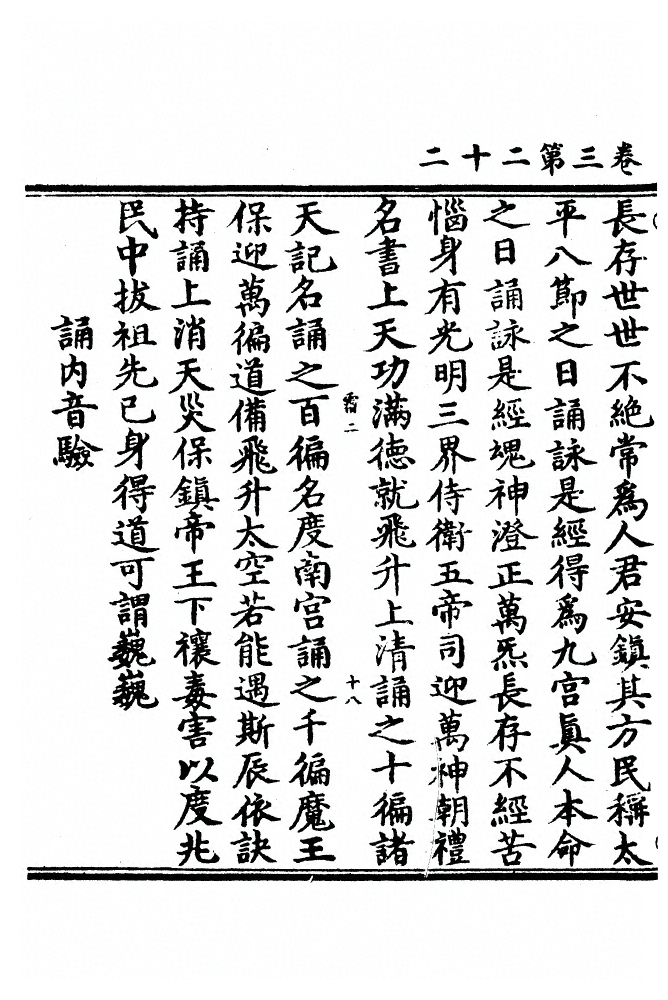 卷三第二十二
長存世世不絶常爲人君安鎮其方民稱太
平八節之日誦詠是經得爲九宮眞人本命
之日誦詠是經魂神澄正萬炁長存不經苦
惱身有光明三界侍衛五帝司迎萬神朝禮
名書上天功滿德就飛升上清誦之十徧諸
霜二
十八
天記名誦之百徧名度南宫誦之千徧魔王
保迎萬徧道備飛升太空若能遇斯辰依訣
持誦上消天災保鎮帝王下禳毒害以度兆
民中拔祖先己身得道可謂巍巍
誦内音驗